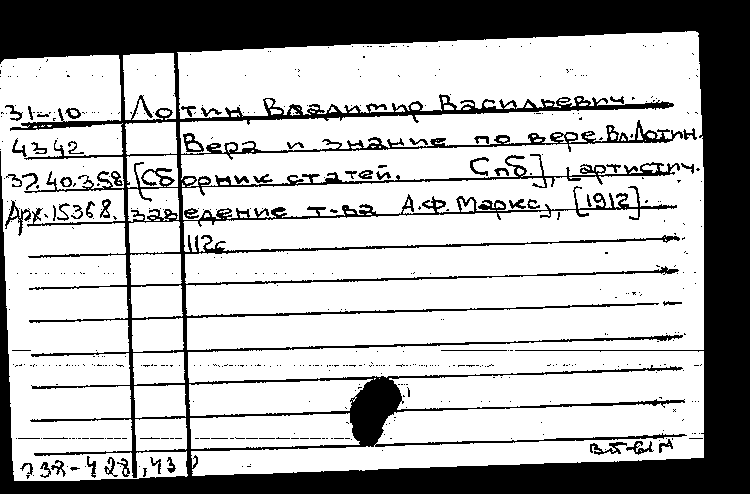 31-10 Лотин, Владимир Васильевич.
4342 Вера и знание по вере. Вл. Лотин.
37.40.3.58. [Сборник статей. Спб], [артистич.
Арх. 15368. заведение т-ва А.Ф. Маркс], [1912].
112с